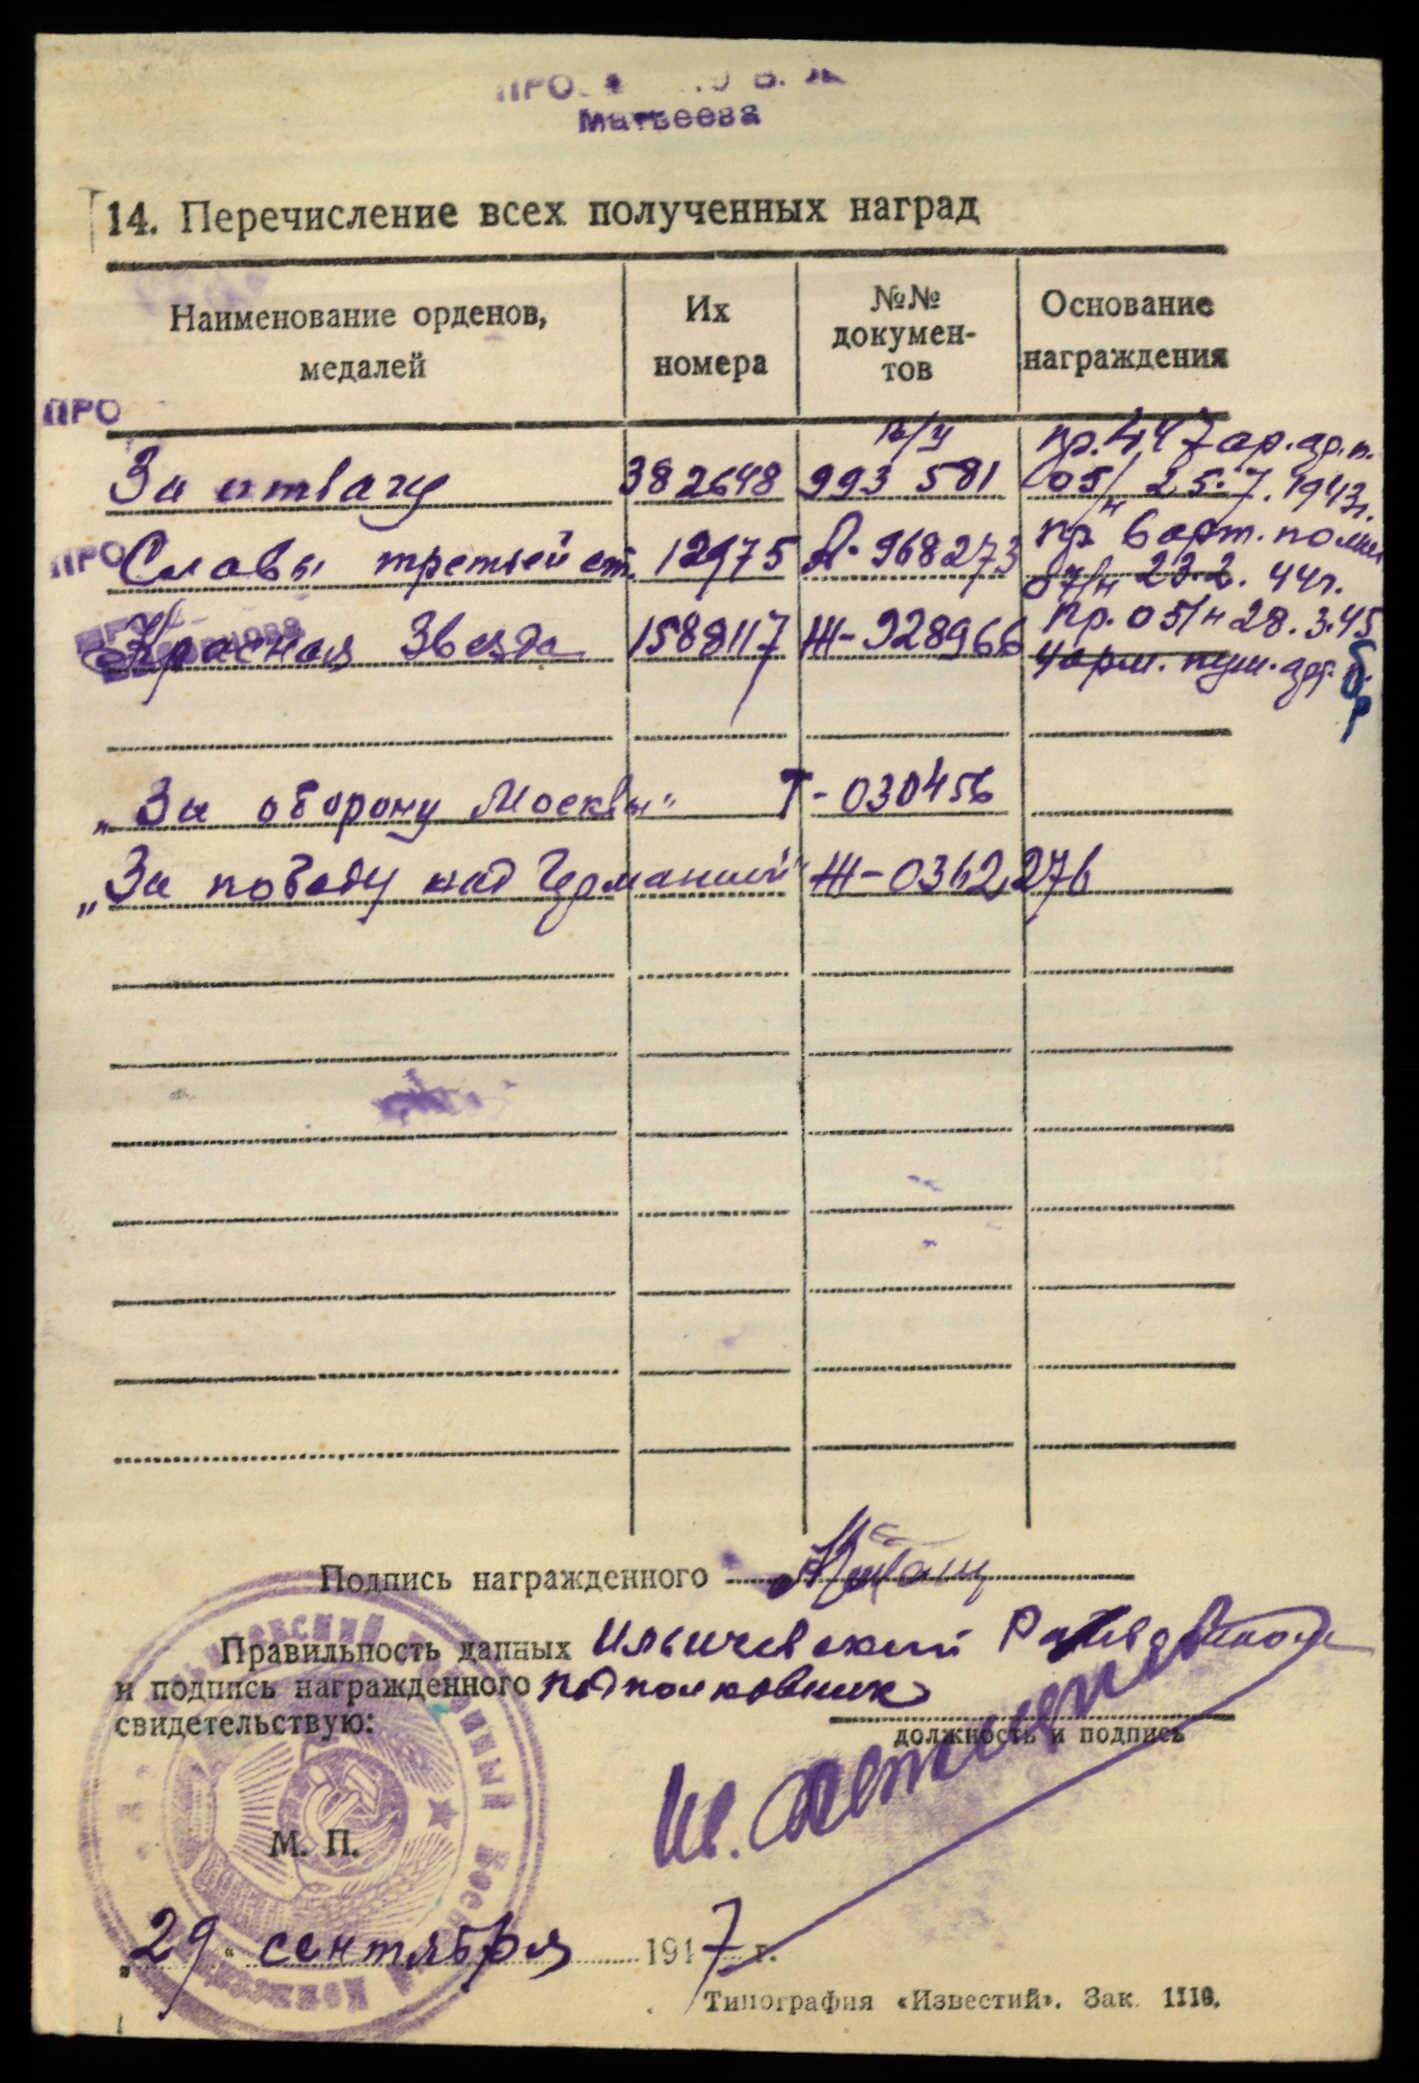 Матвеева
14. Перечисление всех полученных наград
Наименование орденов, медалей
Их номера
№№ документов
Основание награждения
ПРО
За отвагу 382648 в/у 993581 пр. 447 ар. др. п. 05/н 25.7.1943г.
ПРО
Славы третьей ст. 12975 А-968273 пр 6 арт. 07/н 23.2.44г.
Красная Звезда 1588117 Ж-928966 пр. 05/н 28.3.45 4 арт. пуш. бр
„За оборону Москвы" Т-030456
„За победу над Германией" Ж-0362276
Подпись награжденного
Правильность данных Ильичевский
и подпись награжденного подполковник
свидетельствую:
должность и подпись
М. П.
„29" сентября 1947 г.
Типография «Известий». Зак. 1110.